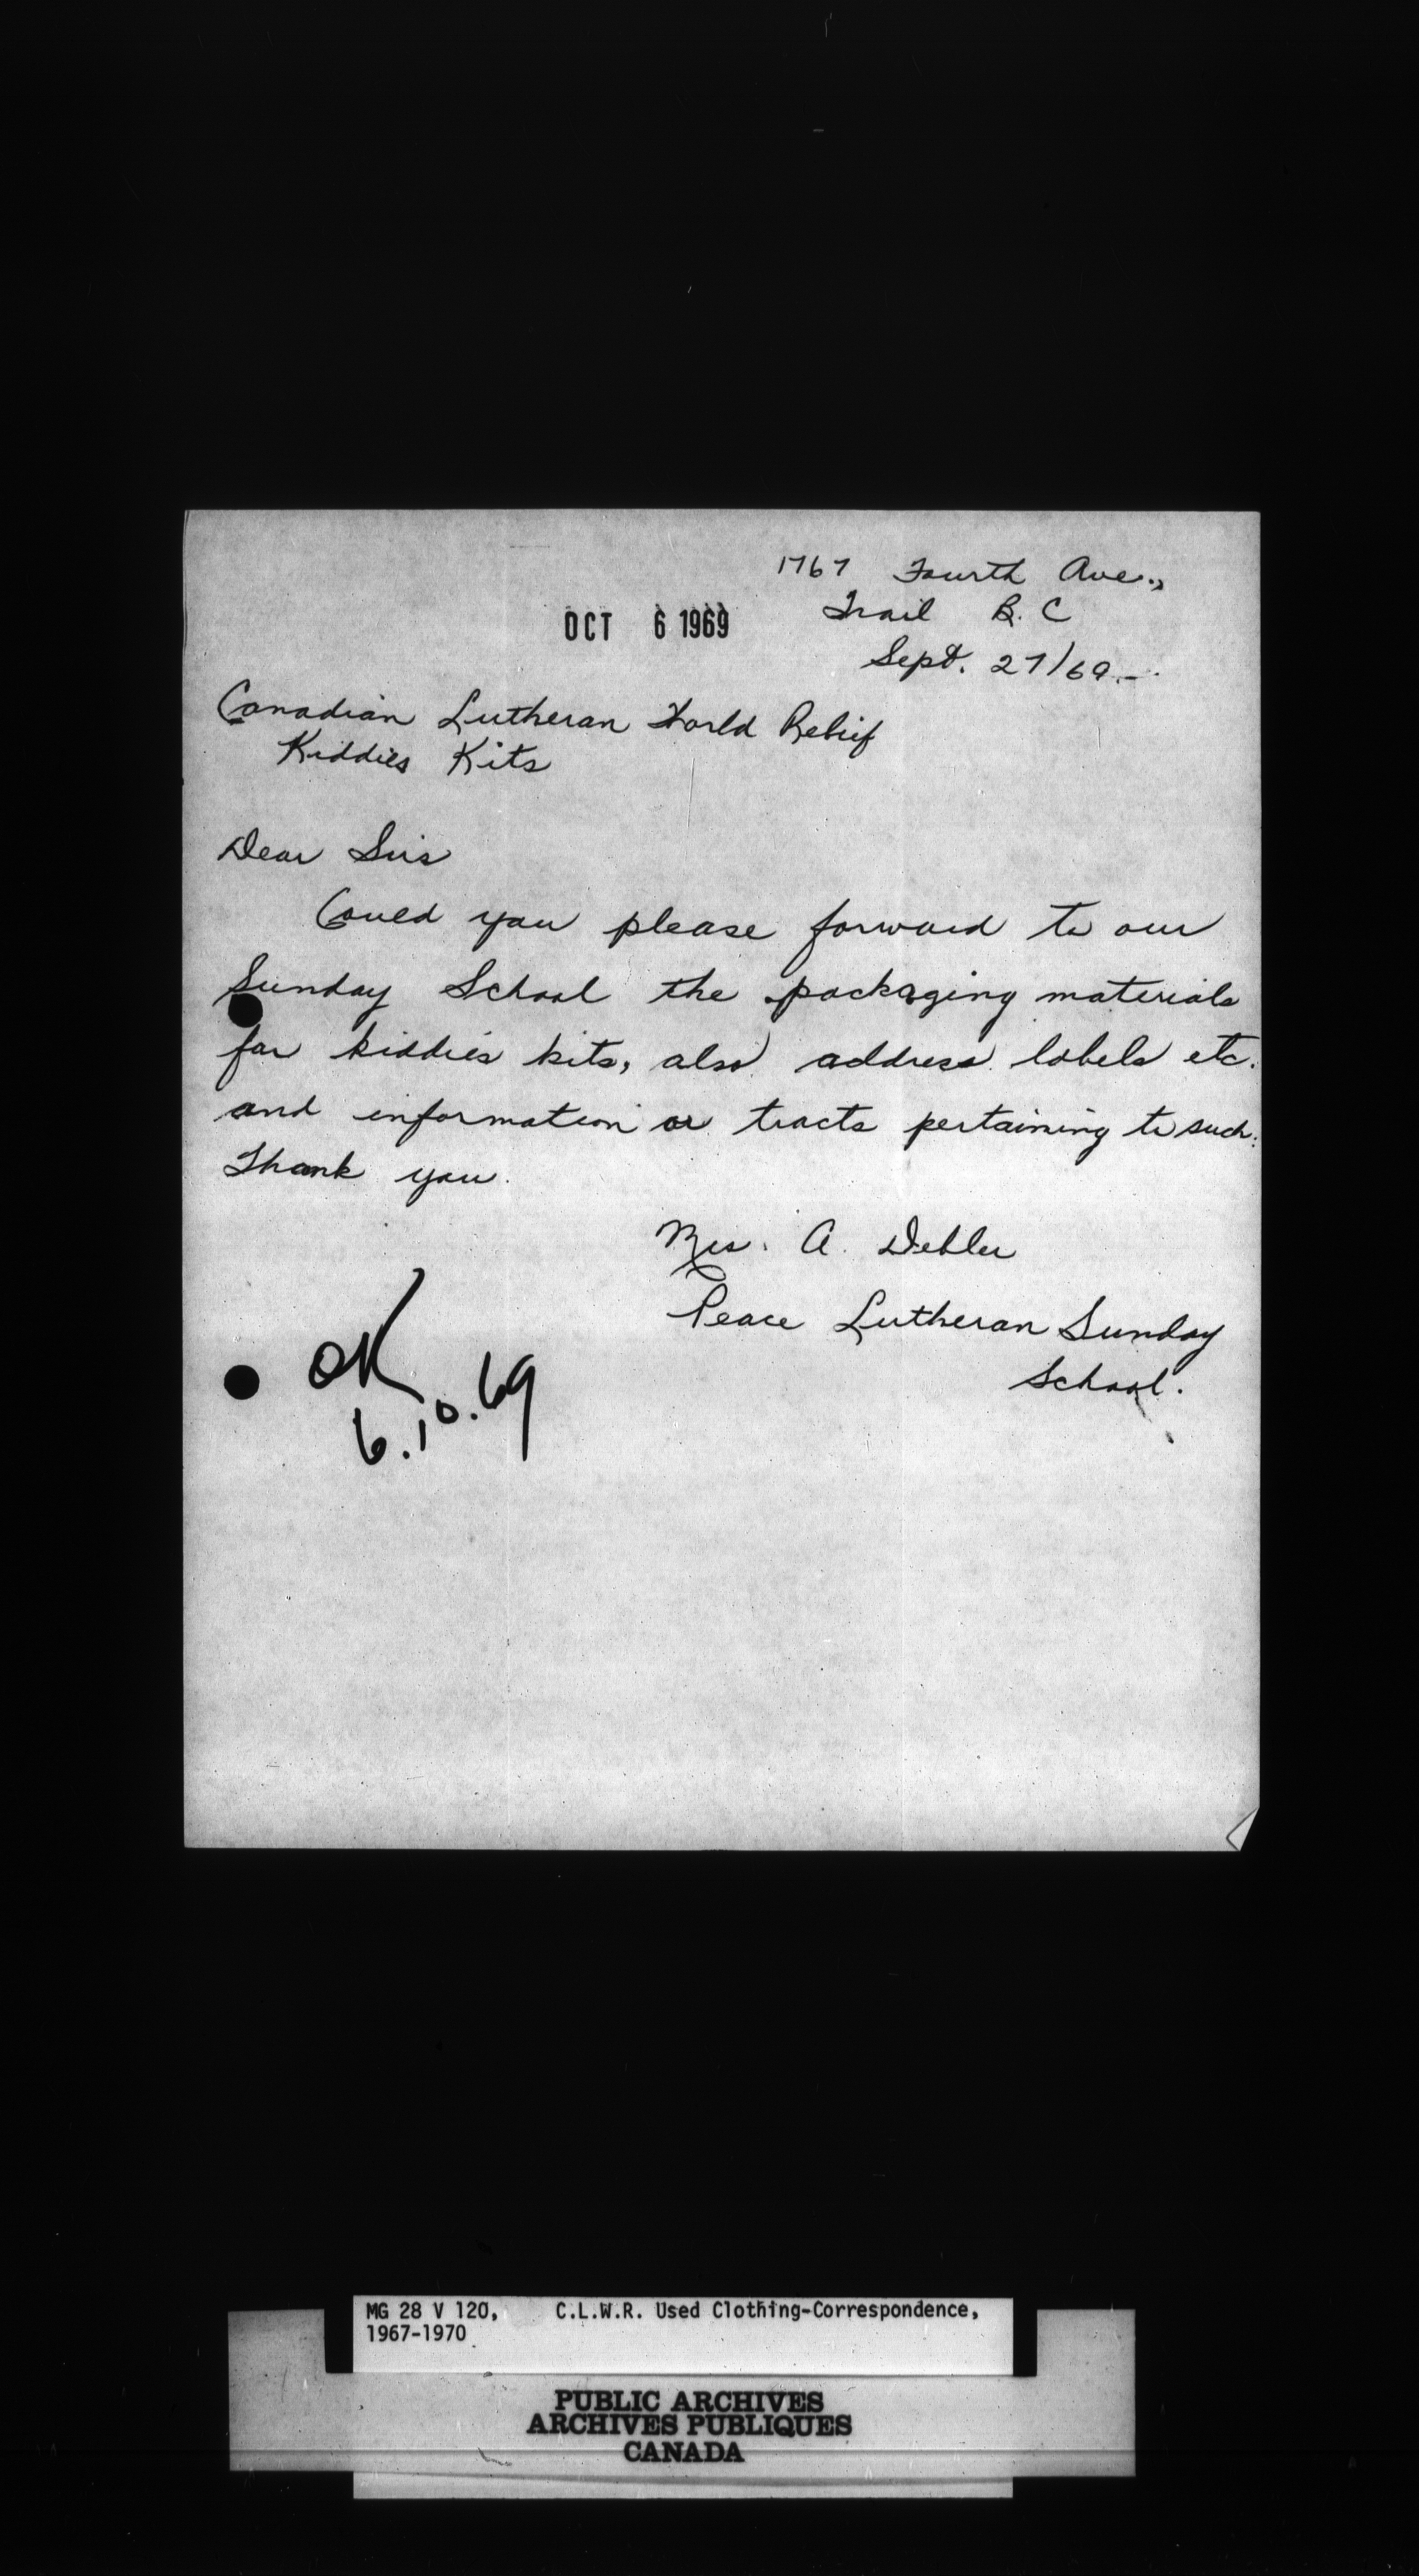 1767 Fourth Ave.,
Trail B.C
OCT 6 1969
Sept. 27/69.-
Canadian Lutheran World Relief
Kiddies Kits
Dear Sirs
Could you please forward to our
Sunday School the packaging materials
for kiddies kits, also address labels etc.
and information or tracts pertaining to such.
Thank you.
Mrs. A. Debler
Peace Lutheran Sunday
School.
OK
6.10.69
MG 28 V 120, C.L.W.R. Used Clothing-Correspondence,
1967-1970
PUBLIC ARCHIVES
ARCHIVES PUBLIQUES
CANADA